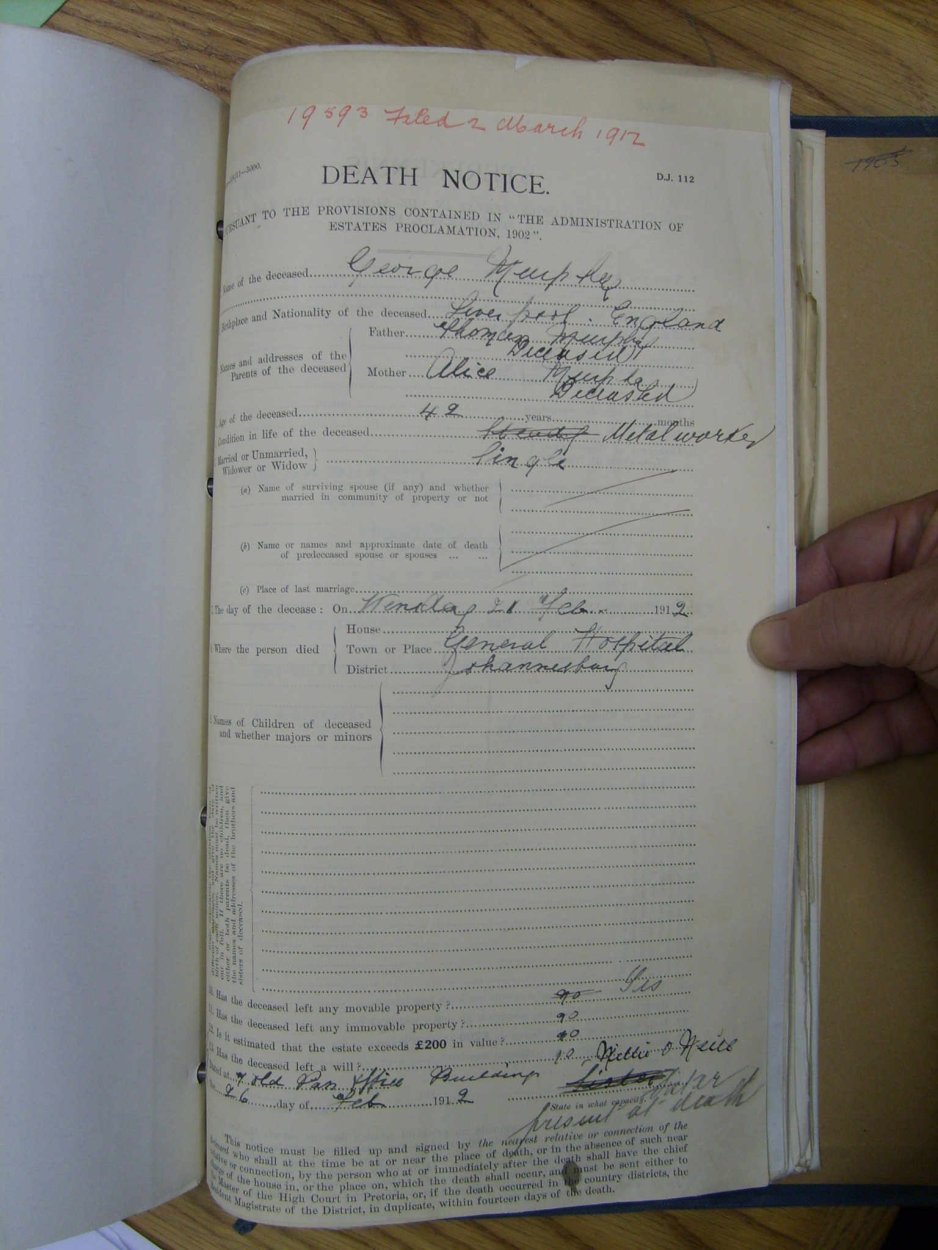 19593 Filed 2 March 1912
1955
DEATH NOTICE.
D.J. 112
PURSUANT TO THE PROVISIONS CONTAINED IN "THE ADMINISTRATION OF
ESTATES PROCLAMATION, 1902".
Name of the deceased George Murphy
Birthplace and Nationality of the deceased Liverpool. England
Names and addresses of the Parents of the deceased
Father Thomas Murphy
Deceased
Mother Alice Murphy
Deceased
Age of the deceased 42 years months
Condition in life of the deceased Metal worker
Married or Unmarried,
Widower or Widow
Single
(a) Name of surviving spouse (if any) and whether
married in community of property or not
(b) Name or names and approximate date of death
of predeceased spouse or spouses ... ...
(c) Place of last marriage
The day of the decease: On 21 Feb. 1912
Where the person died
House
Town or Place General Hospital
District Johannesburg
Names of Children of deceased
and whether majors or minors
either or both parents be dead, then give
the names and addresses of the brothers and
sisters of deceased.
10. Has the deceased left any movable property? no Yes
11. Has the deceased left any immovable property? no
12. Is it estimated that the estate exceeds £200 in value? no
13. Has the deceased left a will? no
Nellie O'Neill
Dated at 7 old Pass Office Buildings
Sister
the 26 day of Feb 1912
State in what capacity
present at death
This notice must be filled up and signed by the nearest relative or connection of the
deceased who shall at the time be at or near the place of death, or in the absence of such near
relative or connection, by the person who at or immediately after the death shall have the chief
charge of the house in, or the place on, which the death shall occur, and must be sent either to
the Master of the High Court in Pretoria, or, if the death occurred in the country districts, the
Resident Magistrate of the District, in duplicate, within fourteen days of the death.